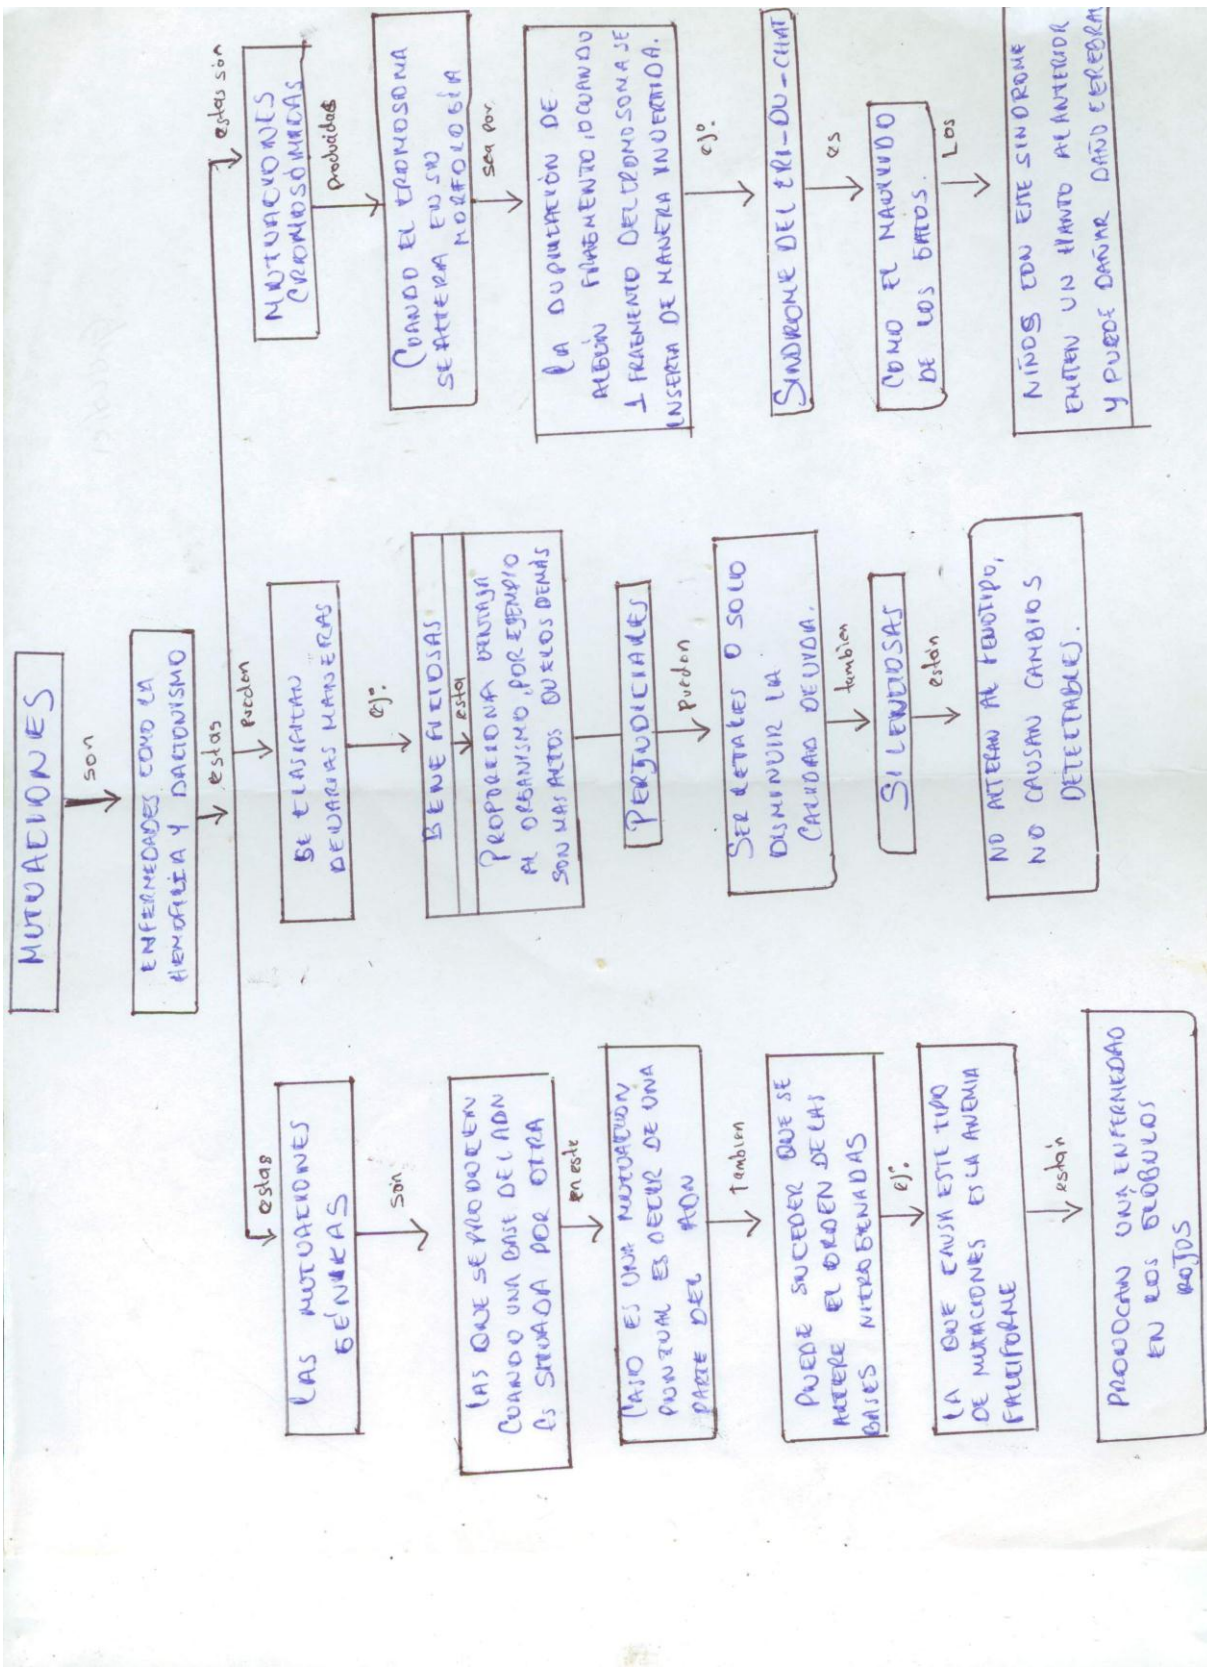 MUTUACIONES
son
ENFERMEDADES COMO LA
HEMOFILIA Y DALTONISMO
estas
estas
LAS MUTUACIONES
GÉNICAS
son
LAS QUE SE PRODUCEN
CUANDO UNA BASE DEL ADN
ES SITUADA POR OTRA
en este
CASO ES UNA MUTUACION
PUNTUAL ES DECIR DE UNA
PARTE DEL ADN
Tambien
PUEDE SUCEDER QUE SE
ALTERE EL ORDEN DE LAS
BASES NITROGENADAS
ej:
LA QUE CAUSA ESTE TIPO
DE MUTACIONES ES LA ANEMIA
FALCIFORME
están
PROVOCAN UNA ENFERMEDAD
EN LOS GLÓBULOS
ROJOS
pueden
SE CLASIFICAN
DE VARIAS MANERAS
ej:
BENEFICIOSAS
esta
PROPORCIONA VENTAJA
AL ORGANISMO, POR EJEMPLO
SON MAS ALTOS QUE LOS DEMÁS
PERJUDICIALES
pueden
SER LETALES O SOLO
DISMINUIR LA
CALIDAD DE VIDA.
tambien
SILENCIOSAS
están
NO ALTERAN AL FENOTIPO,
NO CAUSAN CAMBIOS
DETECTABLES.
estas són
MUTUACIONES
CROMOSÓMICAS
Producidas
CUANDO EL CROMOSOMA
SE ALTERA EN SU
MORFOLOGÍA
sea por.
LA DUPLICACIÓN DE
ALGÚN FRAGMENTO, O CUANDO
1 FRAGMENTO DEL CROMOSOMA SE
INSERTA DE MANERA INVERTIDA.
ej:
SINDROME DEL CRI-DU-CHAT
es
COMO EL MAULLIDO
DE LOS GATOS.
Los
NIÑOS CON ESTE SINDROME
EMITEN UN LLANTO AL ANTERIOR
Y PUEDE DAÑAR DAÑO CEREBRAL